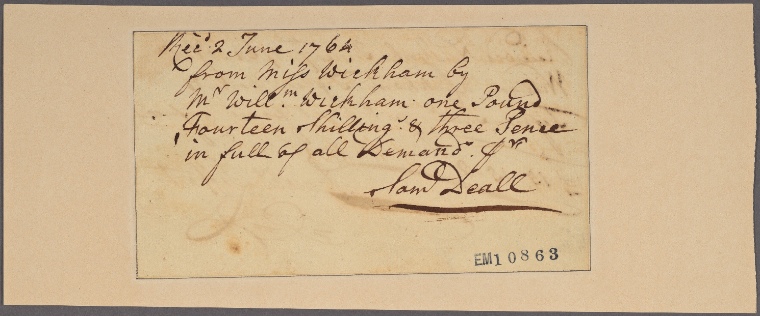 Rec.d 2 June 1764
from Miss Wickham by
Mr Will.m Wickham one Pound
Fourteen Shilling.s & three Pence
in full of all Demand.s Pr
Sam.l Deall
EM10863